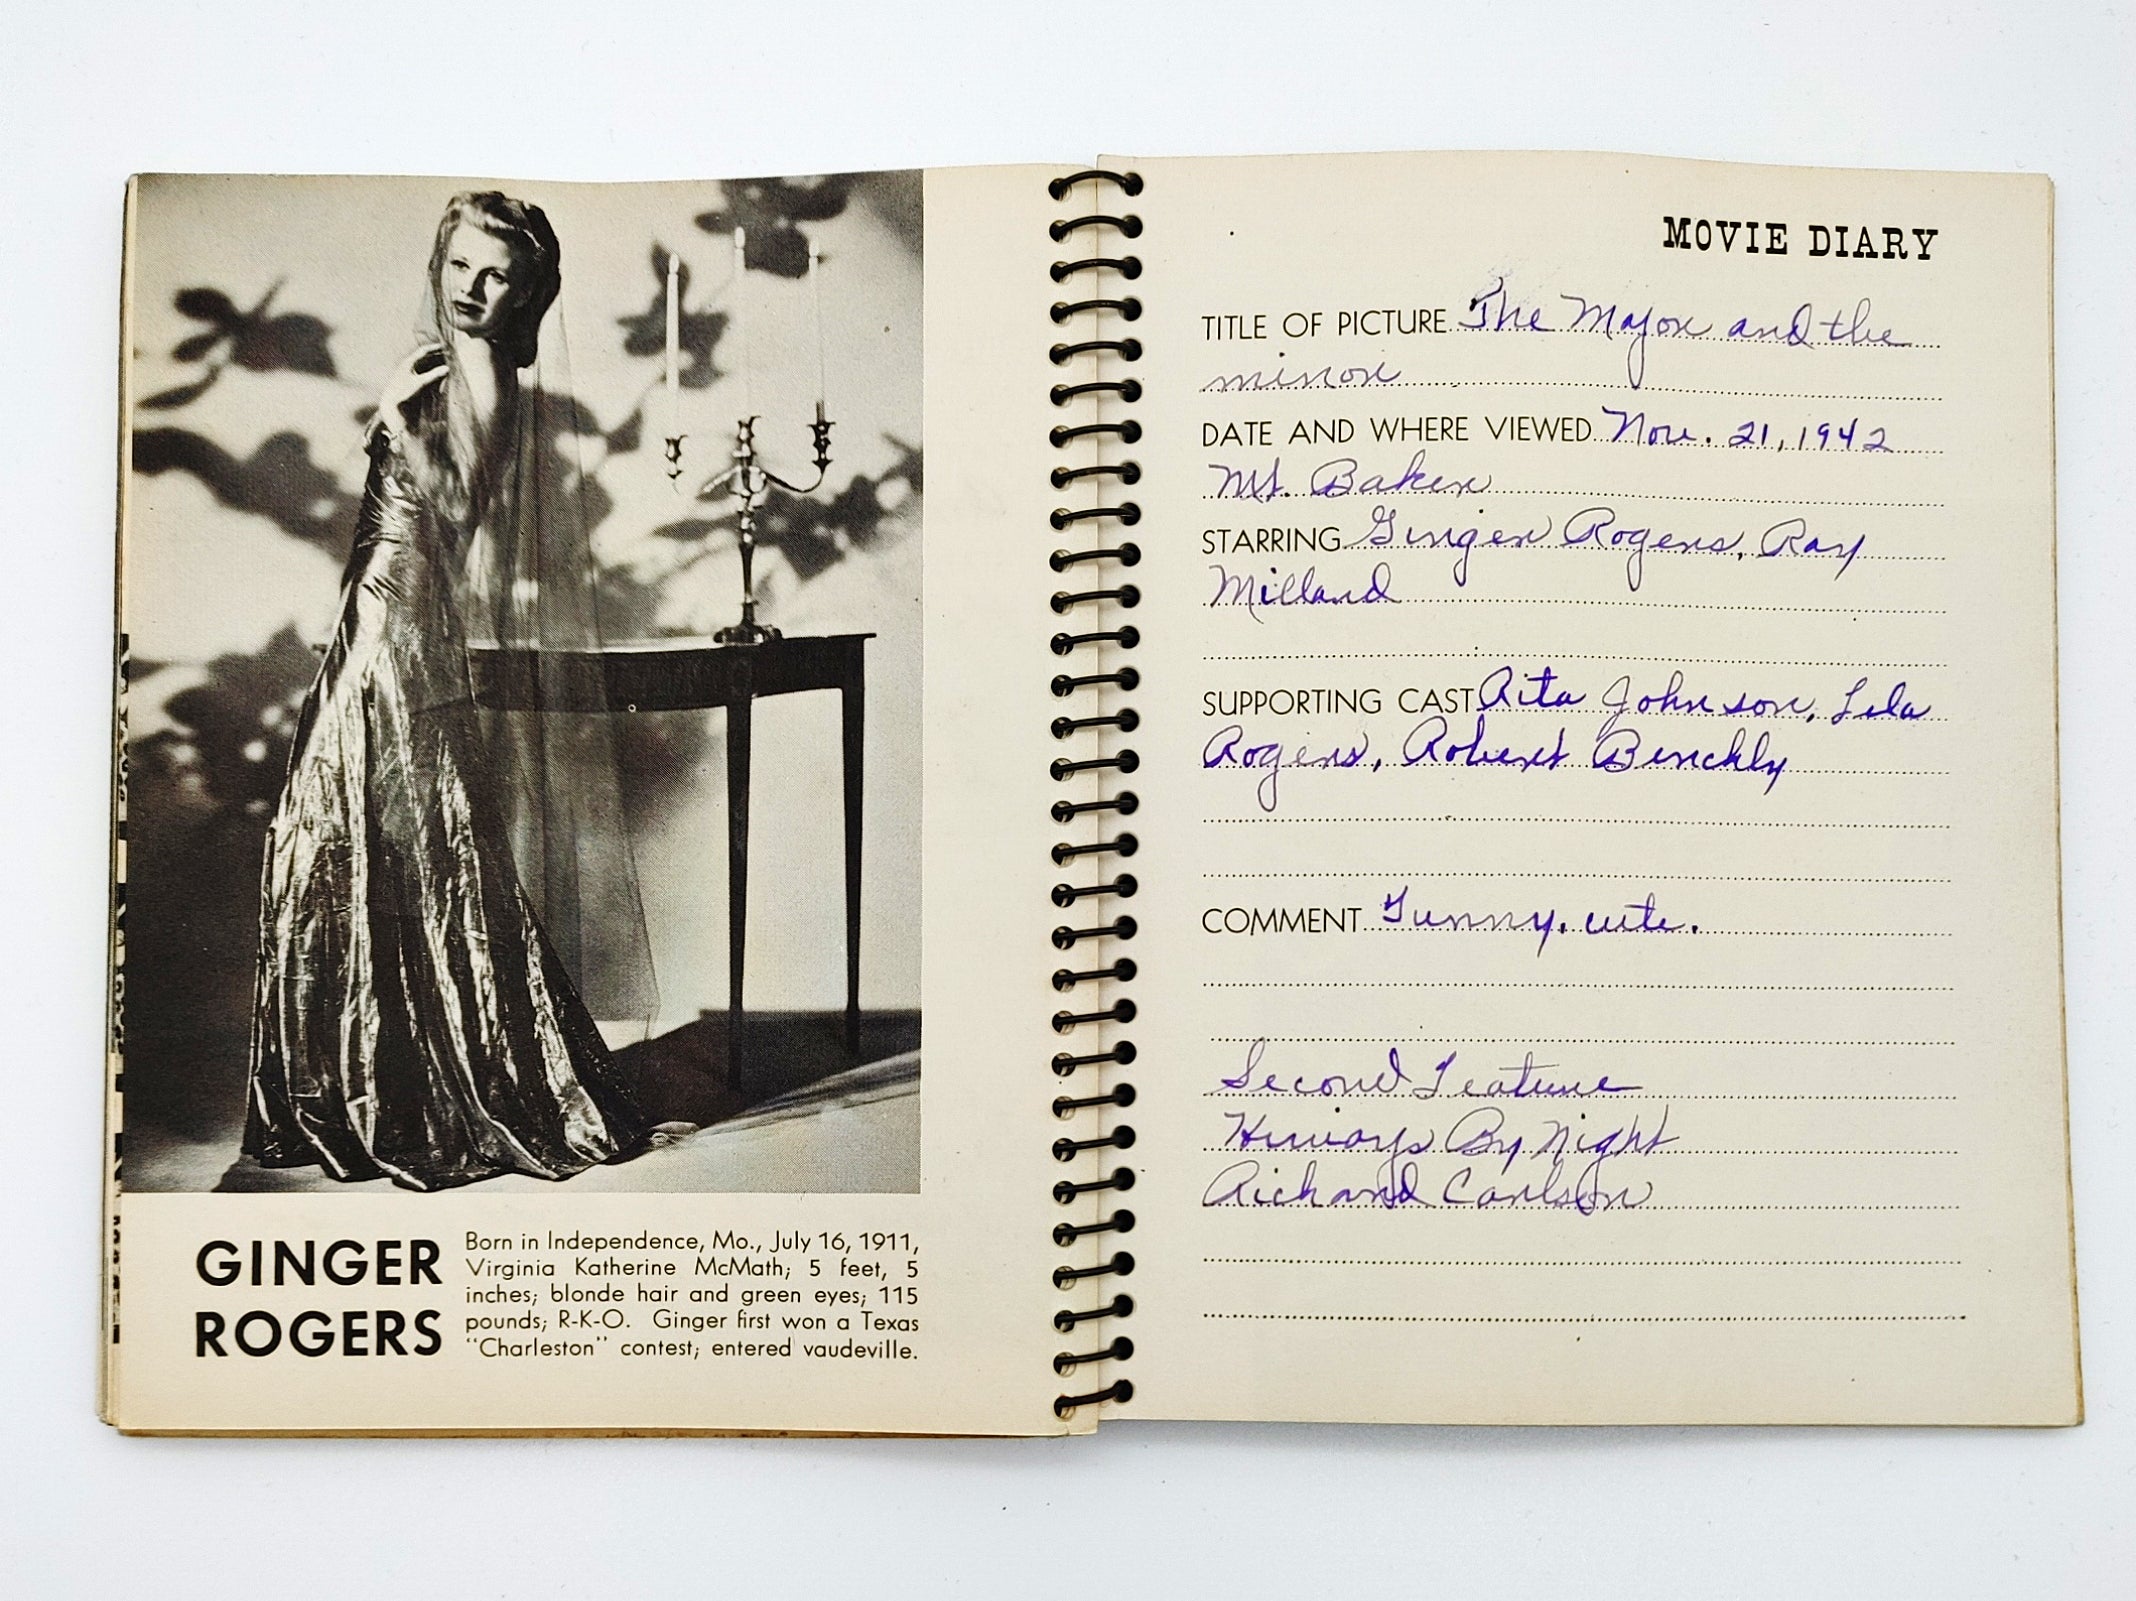 GINGER
ROGERS
Born in Independence, Mo., July 16, 1911,
Virginia Katherine McMath; 5 feet, 5
inches; blonde hair and green eyes; 115
pounds; R-K-O. Ginger first won a Texas
"Charleston" contest; entered vaudeville.
MOVIE DIARY
TITLE OF PICTURE The Major and the
minor
DATE AND WHERE VIEWED Nov. 21, 1942
Mt. Baker
STARRING Ginger Rogers, Ray
Milland
SUPPORTING CAST Rita Johnson, Lela
Rogers, Robert Benchly
COMMENT Funny. cute.
Second Feature
Hiways By Night
Richard Carlson